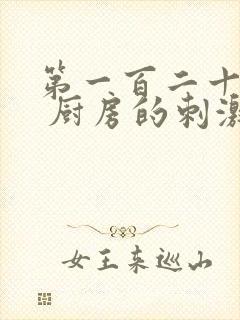 第一百二十
厨房的刺激
女王来巡山